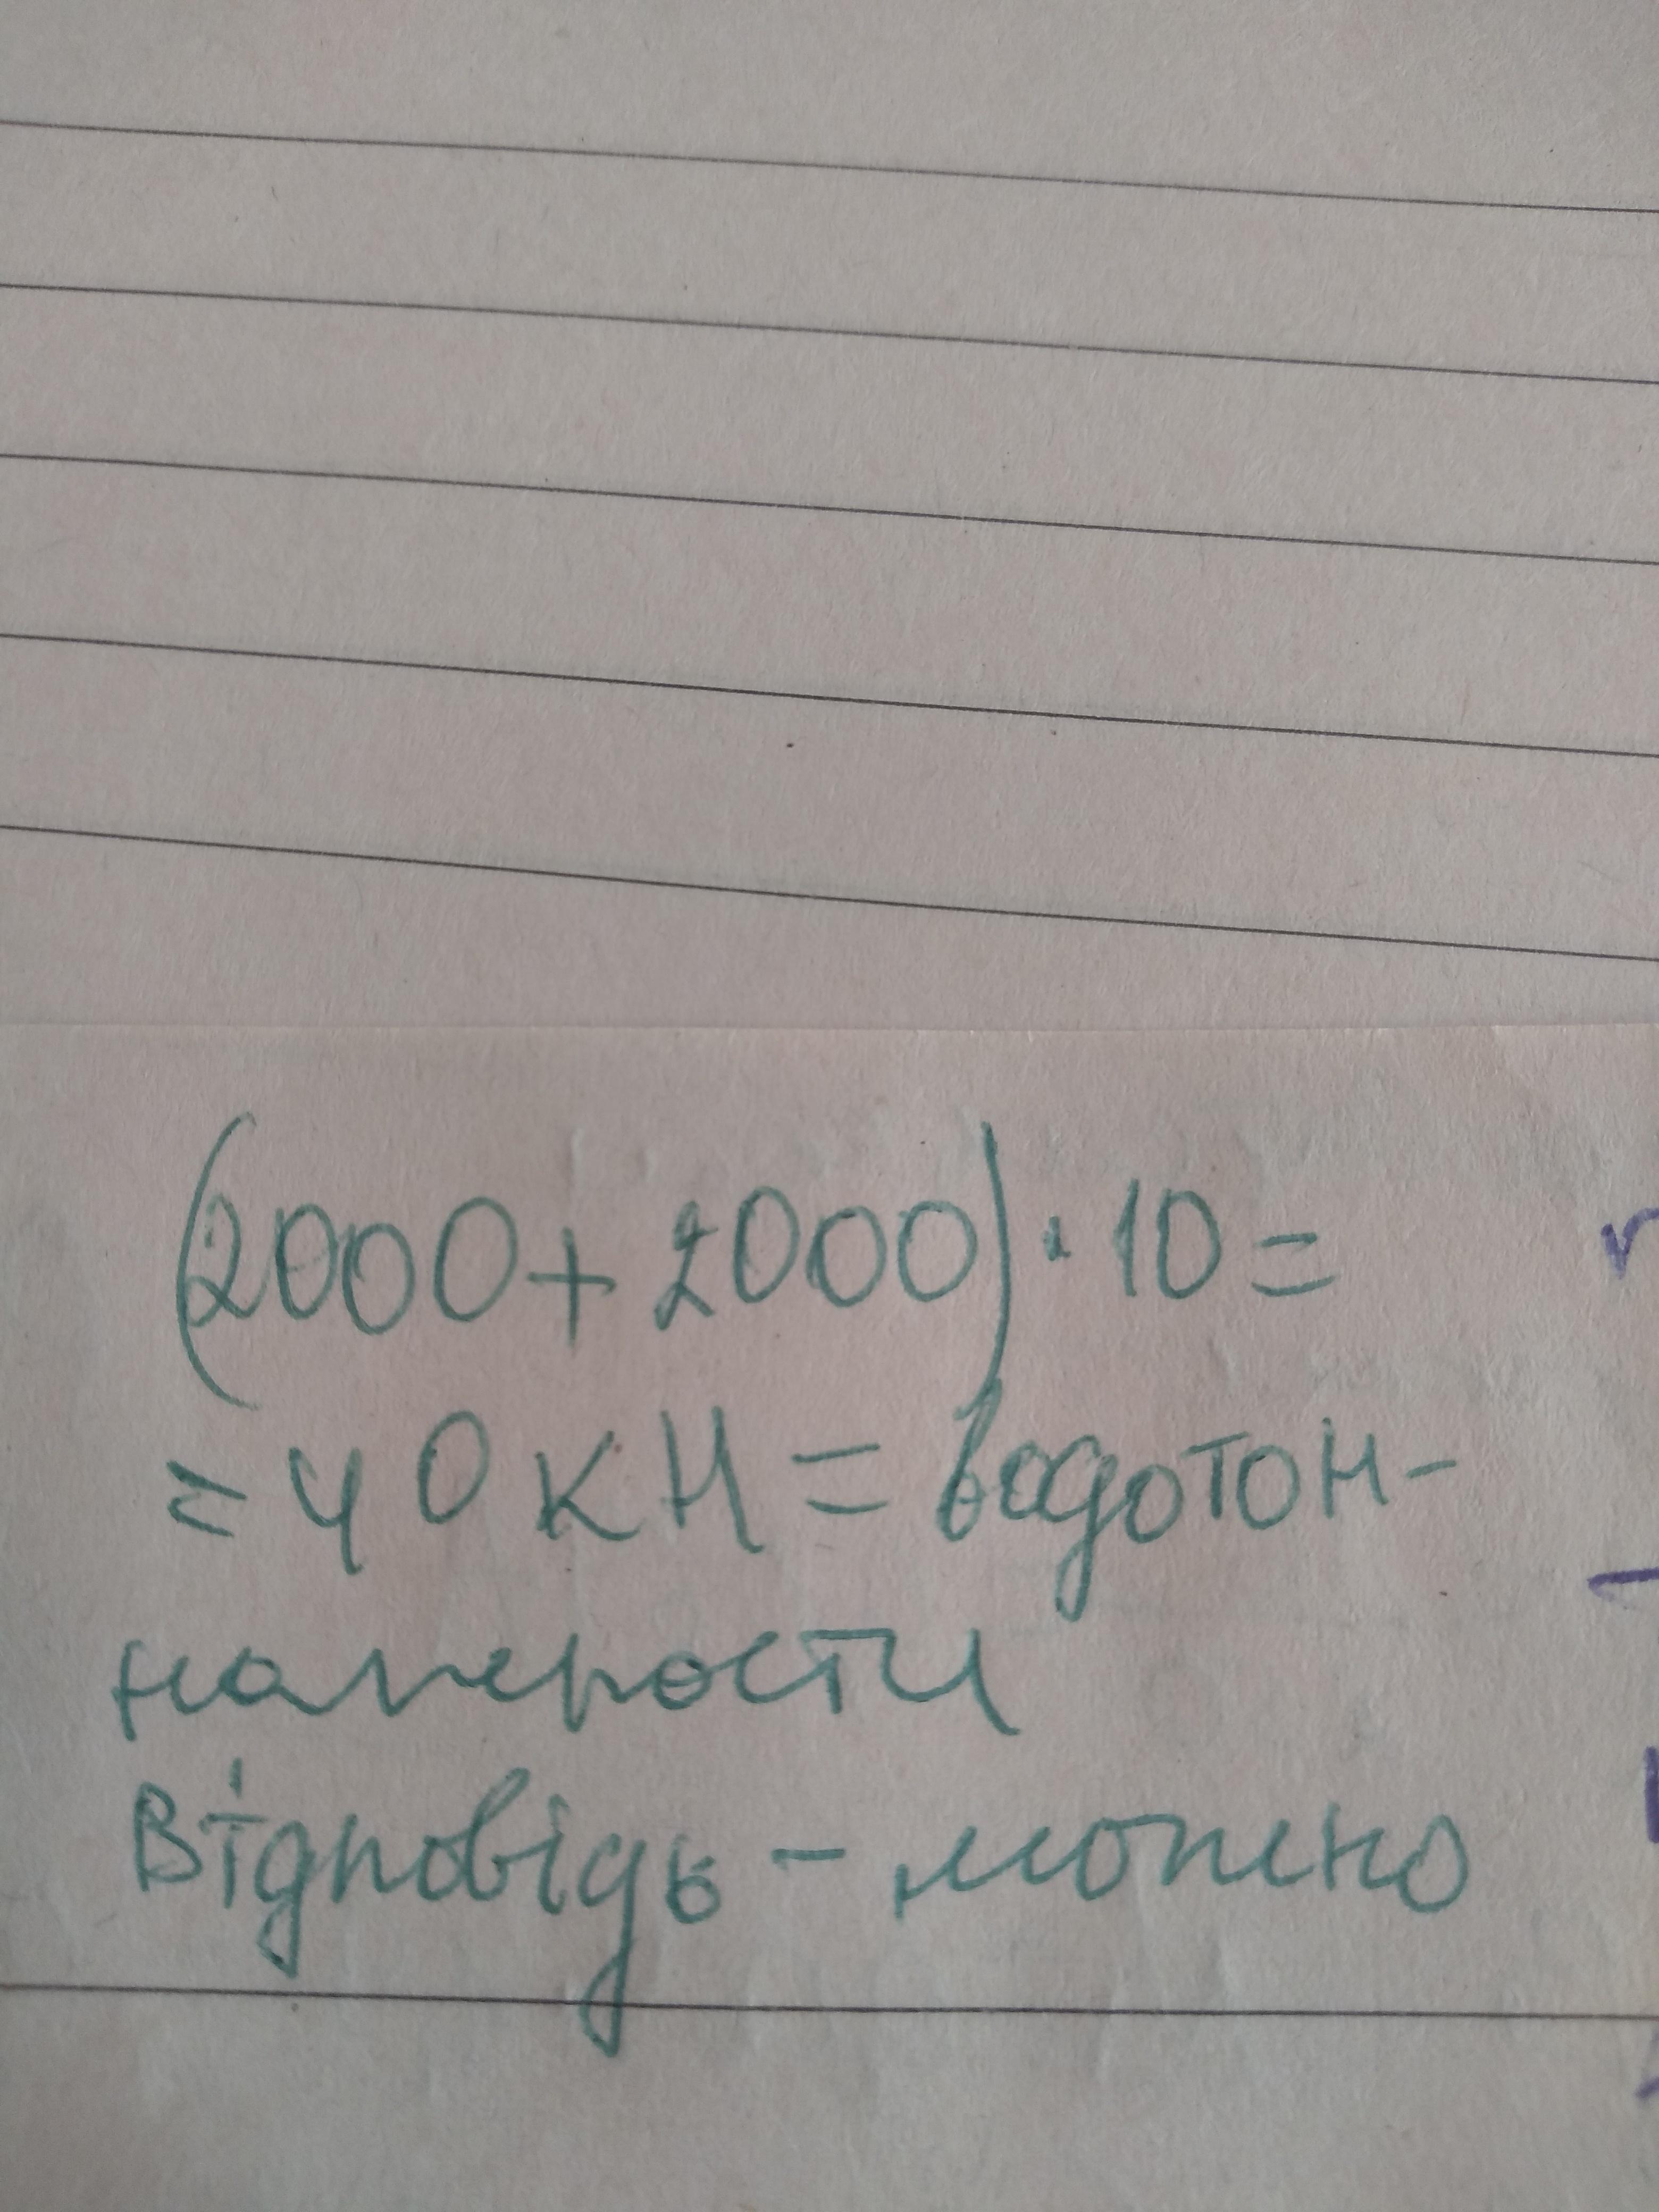 (2000+2000)·10=
=40кН=водотон-
нажности
Відповідь - можно